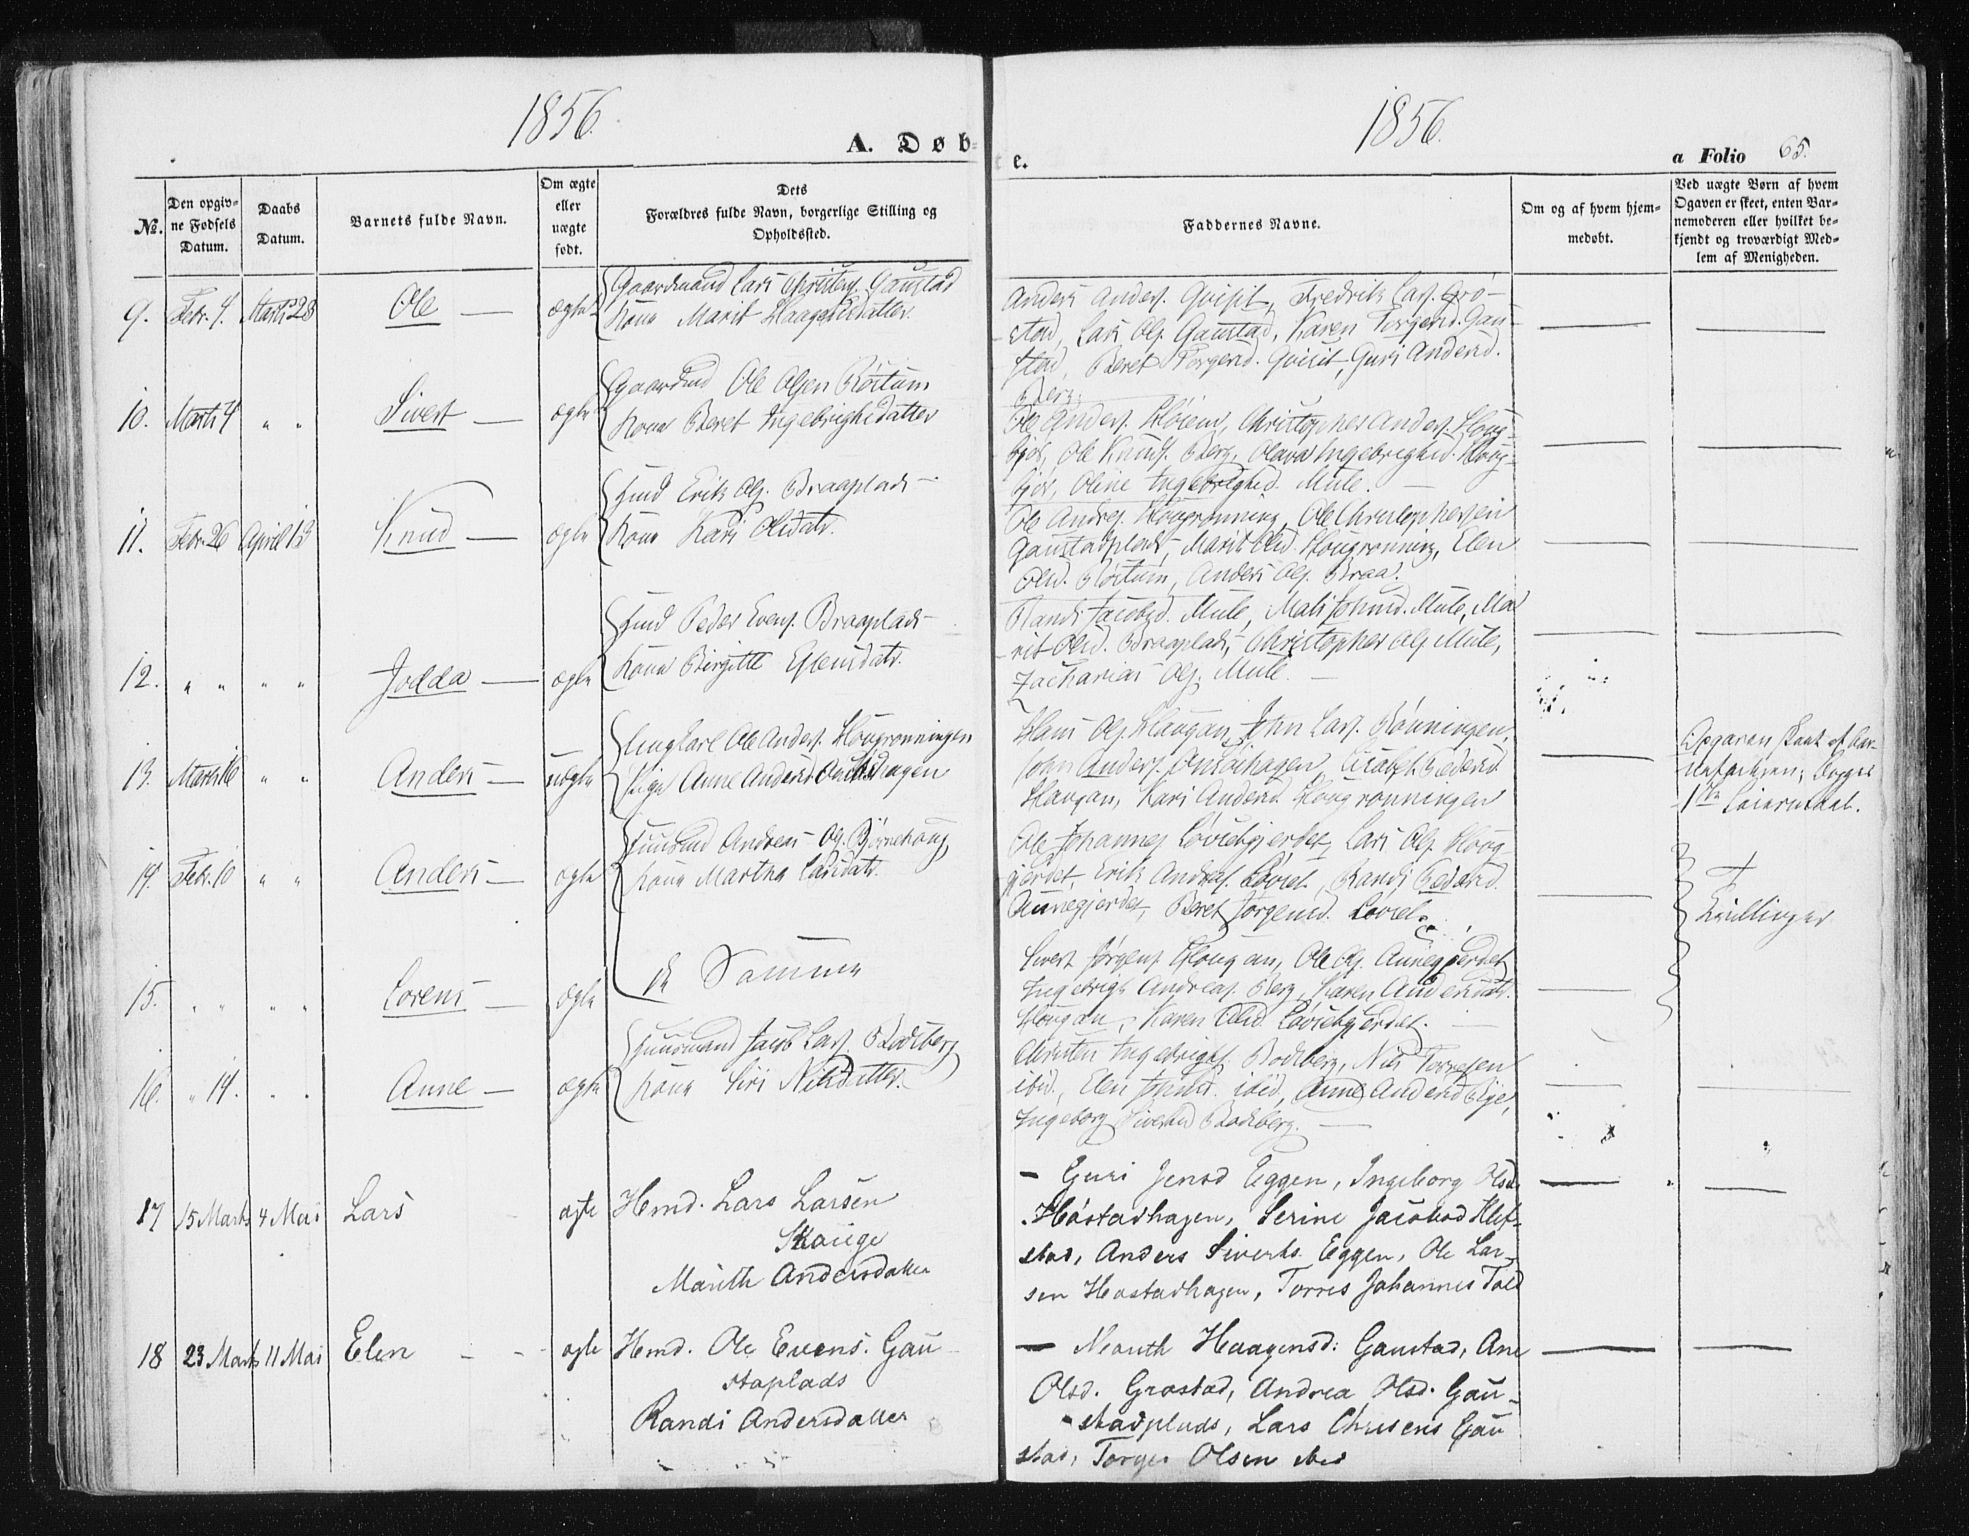 1856.
1856.
A. Døb-
e.
a Folio 65.
No.
Den opgiv-
ne Fødsels
Datum.
Daabs
Datum.
Barnets fulde Navn.
Om ægte
eller
uægte
født.
Dets
Forældres fulde Navn, borgerlige Stilling og
Opholdssted.
Faddernes Navne.
Om og af hvem hjem-
medøbt.
Ved uægte Børn af hvem
Ogaven er skeet, enten Bar-
nemoderen eller hvilket be-
kjendt og troværdigt Med-
lem af Menigheden.
9. Febr. 4. Marts 28 Ole — ægte
Gaardmand Lars Christens. Gaustad
Kone Marit Haagensdatter.
Anders Anders. Qvisit, Fredrik Lars. Grø-
stad, Lars Ols. Gaustad, Karen Torgersd. Gau-
stad, Beret Torgersd. Qvisit, Guri Andersd.
Berg.
10. Marts 4 " " Sivert — ægte
Gaardmd Ole Olsen Röitum
Kone Beret Ingebrigtsdatter
Ole Anders. Höiem, Christopher Anders. Houg-
, Ole Knuds. Berg, Olava Ingebrigtsd. Houg-
, Oline Ingebrigtsd. Mule. —
11. Febr. 26 April 13 Knud — ægte
Hmd Erik Ols. Braaplads —
Kone Kari Olsdatr.
Ole Andrs. Hougrønning, Ole Christophersen
Gaustadplads, Marit Olsd. Hougrønning, Elen
Olsd. Röitum, Anders Ols. Braa.
12. " " " " Jodda — ægte
Hmd Peder Evens. Braaplads —
Kone Birgitte Esensdatr.
Randi Jacobsd. Mule, Mali Johnsd. Mule, Ma-
rit Olsd. Braaplads, Christopher Ols. Mule,
Zacharias Ols. Mule. —
13. Marts 16 " " Anders — uægte
Ungkarl Ole Anders. Hougrønningen
Pige Anne Andersd.
Hans Ols. Haugan, John Lars. Rönningen,
John Anders. , Pedersd.
Haugan, Kari Andersd. Hougrønningen
Opgaven skeet af Bar-
nefaderen; begges
1ste Leiermaal.
14. Febr. 10 " " Anders — ægte
Huusmd Andreas Ols. Björnehoug
Kone Martha Larsdatr.
Ole Johannes , Lars Ols. Houg-
gjerdet, Erik Andreas. Löviet, Randi Pedersd.
Aunegjerdet, Beret Jörgensd. Löviet.
Tvillinger
15. " " " " Lorens — ægte
de Samme
Sivert Jörgens. Hougan, Ole Ols. Aunegjerdet
Ingebrigt Andreas. Berg, Karen Andersdatr.
Hougan, Karen Olsd. . —
16. " 14. " " Anne — ægte
Huusmand Jacob Lars. Rodsberg
Kone Siri Nilsdatter.
Christen Ingebrigts. Rodsberg, Nils Torresen
ibid., Elen ibid, Anne Andersd Rye,
Ingeborg Sivertsd Rodsberg. —
17 15 Marts 4 Mai Lars ægte
Hmd. Lars Larsen
Skauge
Marith Andersdatter
— Guri Jensd Eggen, Ingeborg Olsd.
Höstadhagen, Serine Jacobsd Klef-
stad, Anders Siverts. Eggen, Ole Lar-
sen Höstadhagen, Torres Johannes Tald
18 23 Marts 11 Mai Elen — ægte
Hmd. Ole Evens. Gau-
staplads
Randi Andersdatter
— Marith Haagensd: Gaustad, Ane
Olsd. Grøstad, Andrea Olsd. Gau-
stadplads, Lars Christens Gau
stad, Torger Olsen ibid